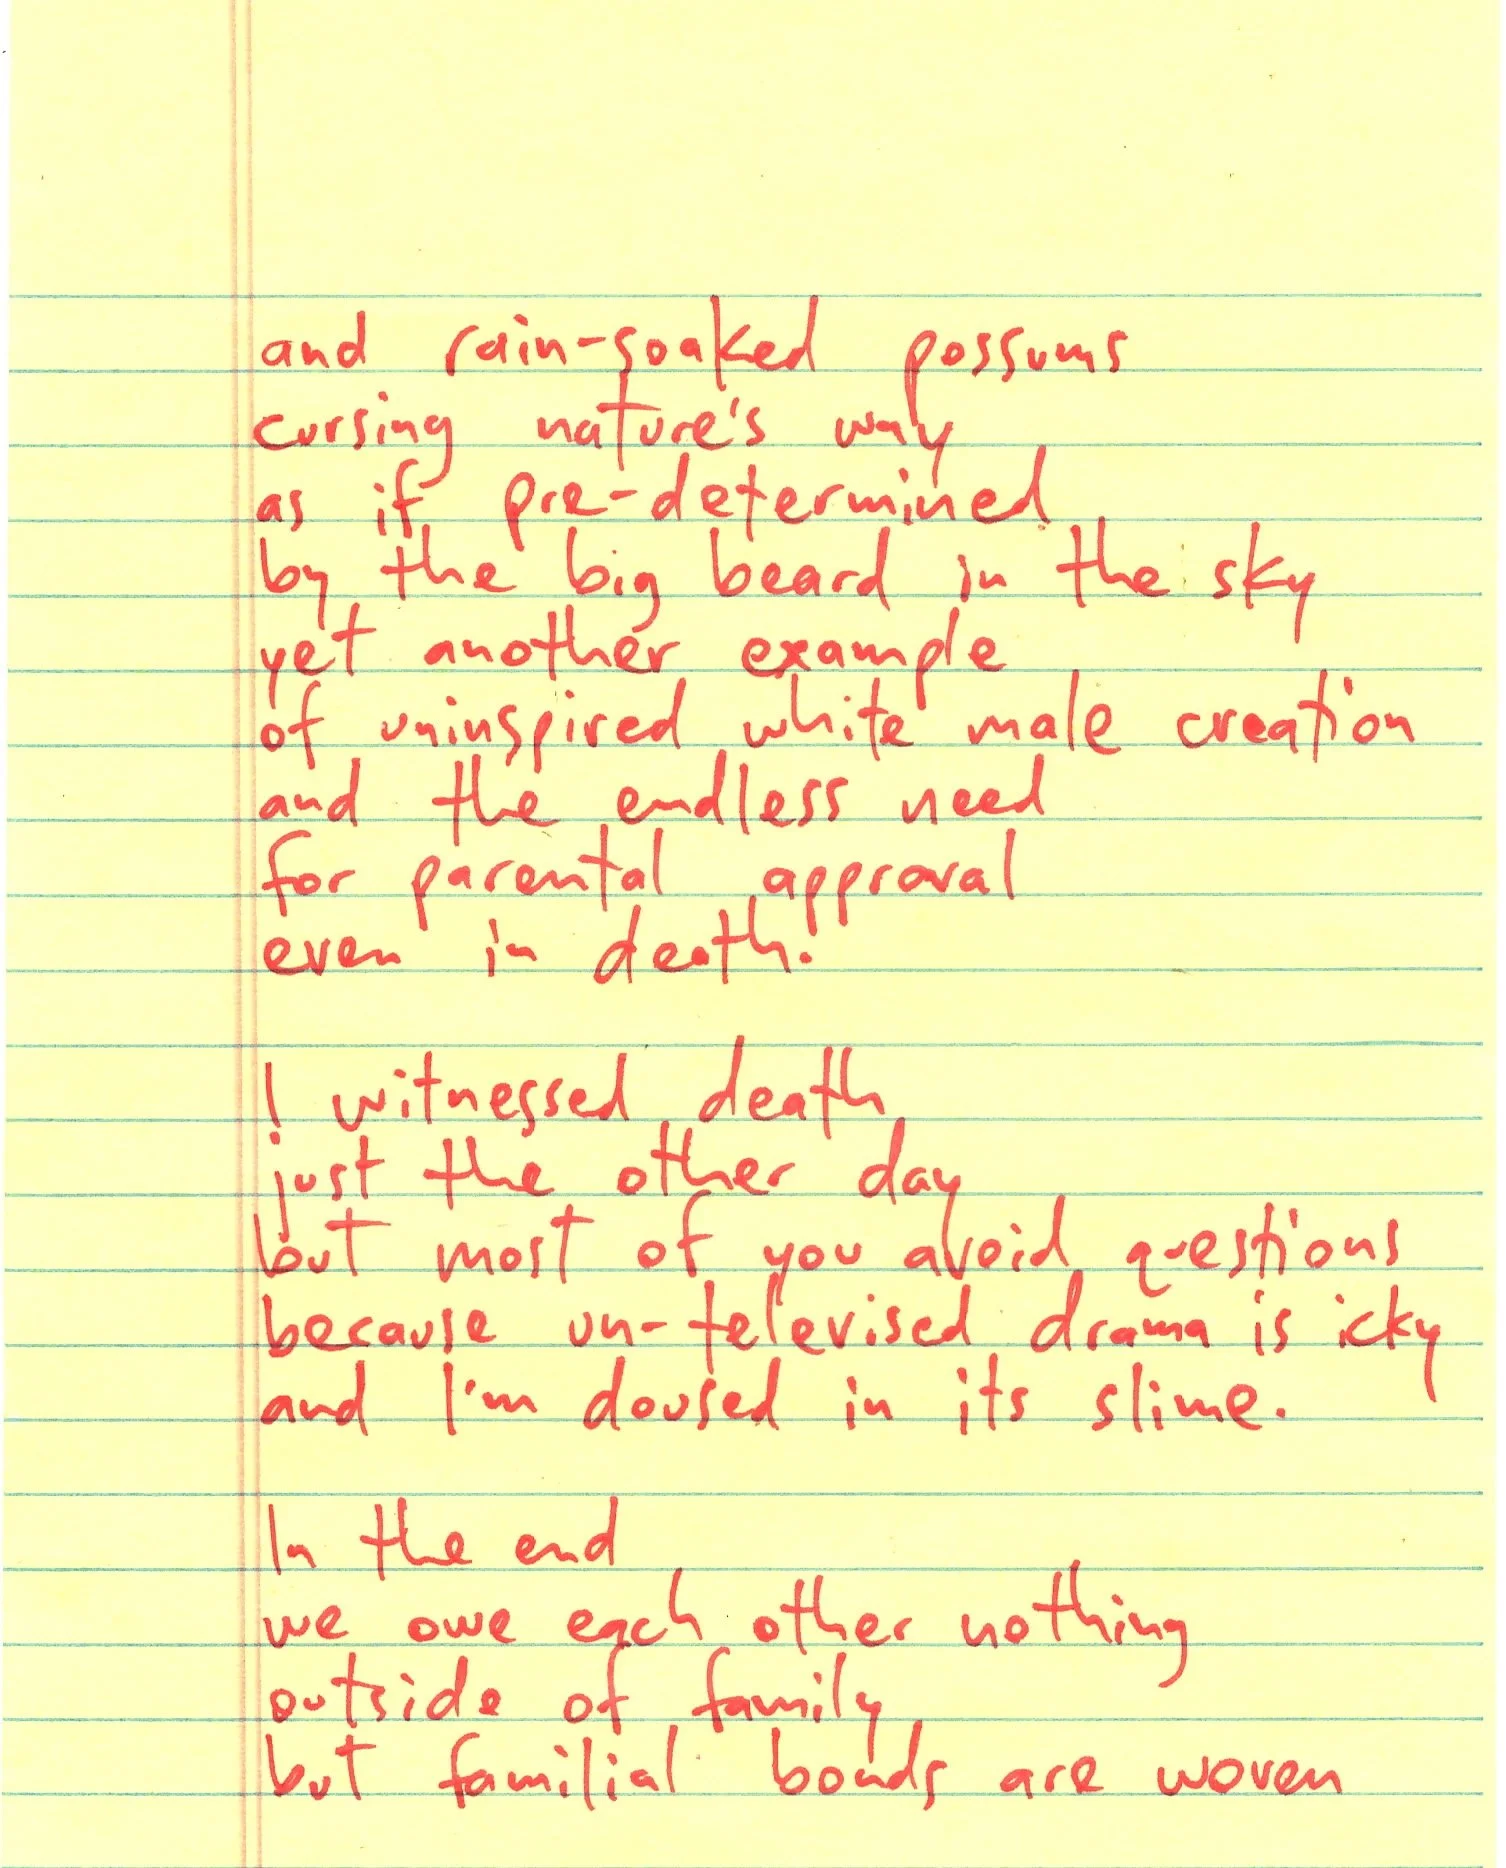 and rain-soaked possums
cursing nature's way
as if pre-determined
by the big beard in the sky
yet another example
of uninspired white male creation
and the endless need
for parental approval
even in death.
I witnessed death
just the other day
but most of you avoid questions
because un-televised drama is icky
and I'm doused in its slime.
In the end
we owe each other nothing
outside of family
but familial bonds are woven